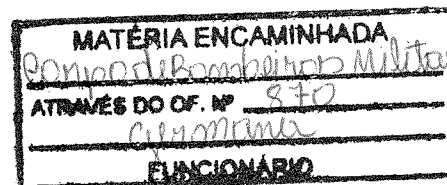 MATÉRIA ENCAMINHADA
Corpo de Bombeiros Militar
ATRAVÉS DO OF. Nº 870
Germana
FUNCIONÁRIO